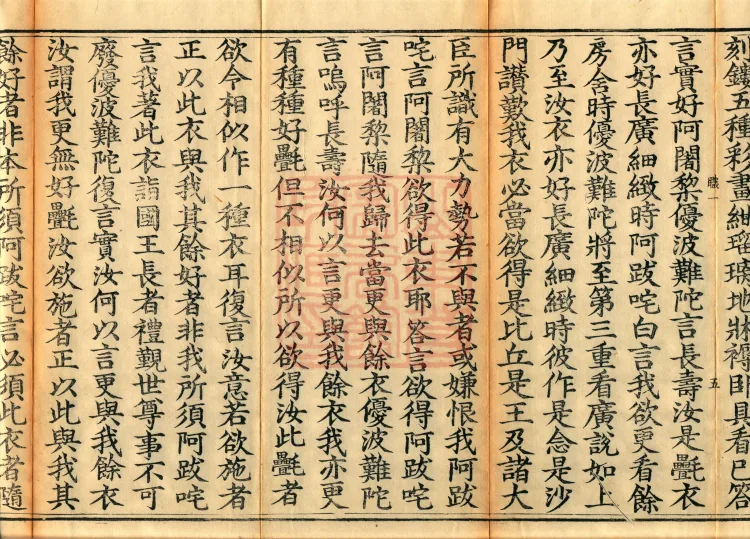 刻鏤五種彩畫紺瑠璃地牀褥臥具看已答
職一 五
言實好阿闍黎優波難陀言長壽汝是氎衣
亦好長廣細緻時阿跋咤白言我欲更看餘
房舍時優波難陀將至第三重看廣說如上
乃至汝衣亦好長廣細緻時彼作是念是沙
門讃歎我衣必當欲得是比丘是王及諸大
臣所識有大力勢若不與者或嫌恨我阿跋
咤言阿闍黎欲得此衣耶答言欲得阿跋咤
言阿闍黎隨我歸去當更與餘衣優波難陀
言嗚呼長壽汝何以言更與我餘衣我亦更
有種種好氎但不相似所以欲得汝此氎者
欲令相似作一種衣耳復言汝意若欲施者
正以此衣與我其餘好者非我所須阿跋咤
言我著此衣詣國王長者禮覲世尊事不可
廢優波難陀復言實汝何以言更與我餘衣
汝謂我更無好氎汝欲施者正以此與我其
餘好者非本所須阿跋咤言必須此衣者隨